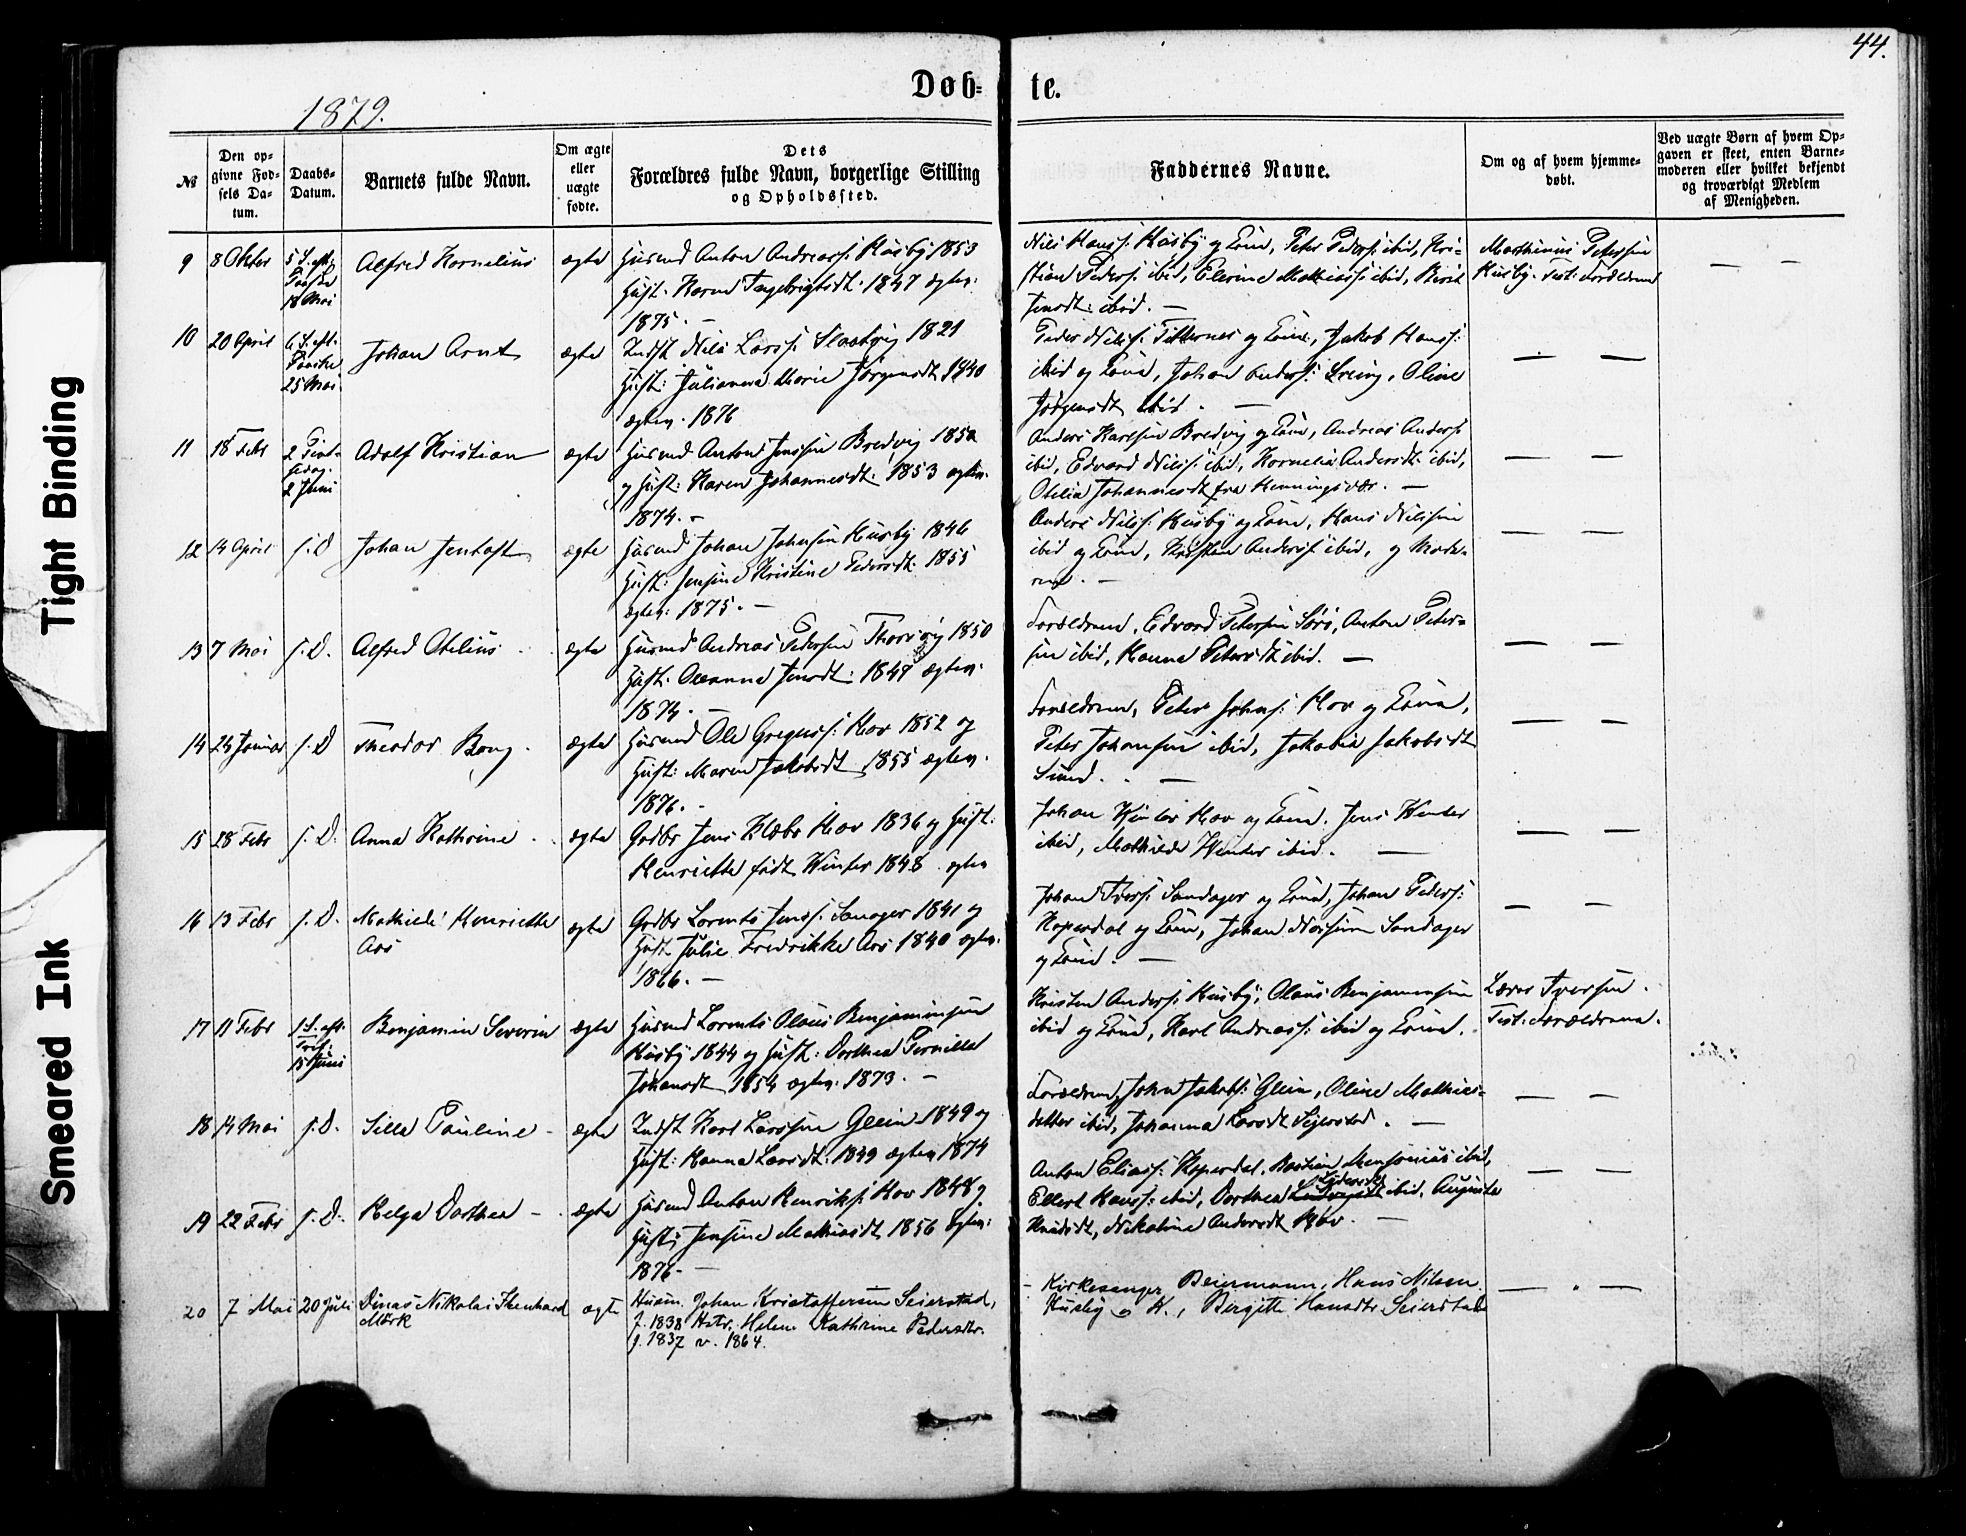 44.
Døb- te.
1879.
№
Den op-
givne Fød-
sels Da-
tum.
Daabs-
Datum.
Barnets fulde Navn.
Om ægte
eller
uægte
fødte.
Dets
Forældres fulde Navn, borgerlige Stilling
og Opholdssted.
Faddernes Navne.
Om og af hvem hjemme-
døbt.
Ved uægte Børn af hvem Op-
gaven er skeet, enten Barne-
moderen eller hvilket bekjendt
og troværdigt Medlem
af Menigheden.
9 8 Oktbr 5 S. eft. Paaske 18 Mai Alfred Kornelius ægte
Husmd Anton Andreass: Husby 1853
Hust. Karen 1847 ægtev.
1875. —
Nils Hanss: Husby og Kone, Peter Peders: ibid, Kri-
stian Peders: ibid, Elerine Mathiass: ibid, Berit
Jensdt: ibid. —
Marthinius Petersen
Husby. Test: Forældrene
— —
10 20 April 6 S. eft. Paaske 25 Mai Johan Arnt ægte
Indst Nils Larss: Slaatvig 1821
Hust: Julianna Marie Jørgensdt 1840
ægtev. 1876
Peder Nilss: Titternes og Kone, Jakob Hanss:
ibid og Kone, Johan Anders: , Oline
Jørgensdt ibid. —
— —
11 18 Febr 2 Pint-
sedag.
2 Juni Adolf Kristian ægte
Husmd Anton Jenssen Bredvig 1850
og Hust: Karen Johannesdt: 1853 ægtev.
1874. —
Anders Karlsen Bredvig og Kone, Andreas Anders:
ibid, Edvard Nilss: ibid, Kornelia Andersdt: ibid,
Otelia Johannesdt fra Henningsvær. —
— —
12 14 April s. D Johan Jentoft ægte
Husmd Johan Johnsen Husby 1846
Hust: Jensine Kristine Pedersdt: 1855
ægtev: 1875. —
Anders Nilss: Husby og Kone, Hans Nilssen
ibid og Kone, Kristen Anders: ibid, og Mode-
ren. —
— —
13 7 Mai s. D. Alfred Otelius ægte
Husmd Andreas Pedersen Thorsvig 1850
Hust: Oceanna Jensdt: 1847 ægtev:
1874. —
Forældrene, Edvard Petersen Sørø, Anton Peter-
sen ibid, Hanna Petersdt ibid. —
— —
14 24 Januar s. D Theodor Bong. ægte
Husmd Ole Greguss: Hov 1852 og
Hust: Maren Jakobsdt 1855 ægtev.
1876. —
Forældrene, Peter Johns: Hov og Kone,
Peter Johansen ibid, Jakobia Jakobsdt
Sund. —
— —
15 28 Febr s. D. Anna Kathrine ægte
Grdbr Jens Klæbo Hov 1836 og Hust:
Henriette født Winter 1848. ægtev
Johan Winter Hov og Kone. Jens Winter
ibid, Mathilde Winter ibid. —
— —
16 13 Febr s. D. Mathilde Henriette
Aas ægte
Grdbr Lorents Jenss: Sanager 1841 og
Hust Julie Fredrikke Aas 1840 ægtev.
1866. —
Johan Iverss: Sandager og Kone, Johan Peders:
Hoperdal og Kone, Johan Sandager
og Kone. —
— —
17 11 Febr 1 S. eft.
Tref:
15 Juni Benjamin Severin ægte
Husmd Lorents Olaus Benjaminsen
Husby 1844 og Hust: Dorthea Pernille
Johansdt 1854 ægtev: 1873. —
Kristen Anders: Husby, Olaus Benjaminsen
ibid og Kone, Karl Andreass: ibid og Kone.
Lærer Iversen.
Test: Forældrene.
18 14 Mai s. D. Silla Pauline — ægte
Indst Karl Larssen Glein 1849 og
Hust: Hanna Larsdt: 1849 ægtev 1874
Forældrene, Johan Jakobs: Glein, Oline Mathias-
datter ibid, Johanna Larsdt Sejersted. —
— —
19 22 Febr s. D. Helga Dorthea — ægte
Husmd Anton Henriks: Hov 1848 og
Hust: Jensine Mathiasdt 1856 ægtev:
1876 —
Anton Eliass: Hoperdal, Bastian ibid,
Ellert Hanss: ibid, Dorthea ibid, Augusta
Knudsdt, Nikoline Andersdt Hov. —
— —
20 7 Mai 20 Juli Dinas Nikolai Ihenhard
Mørk ægte
Husm. Johan Kristoffersen Seierstad,
f. 1838 Hstr. Helene Kathrine Pedersdtr.
f. 1837 v. 1864.
- Kirkesanger Beiermann, Hans Nilsen
Husby o K., Bergitte Hansdtr Seierstad
— —
Tight Binding
Smeared Ink